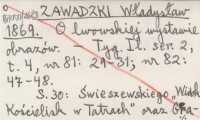 ZAWADZKI Władysław
1869. O lwowskiej wystawie
obrazów. – Tyg. Il. ser. 2,
t. 4, nr 81: 29-31; nr 82:
47-48.
S. 30: Świeszewskiego, „Widok
Kościelisk w Tatrach" oraz